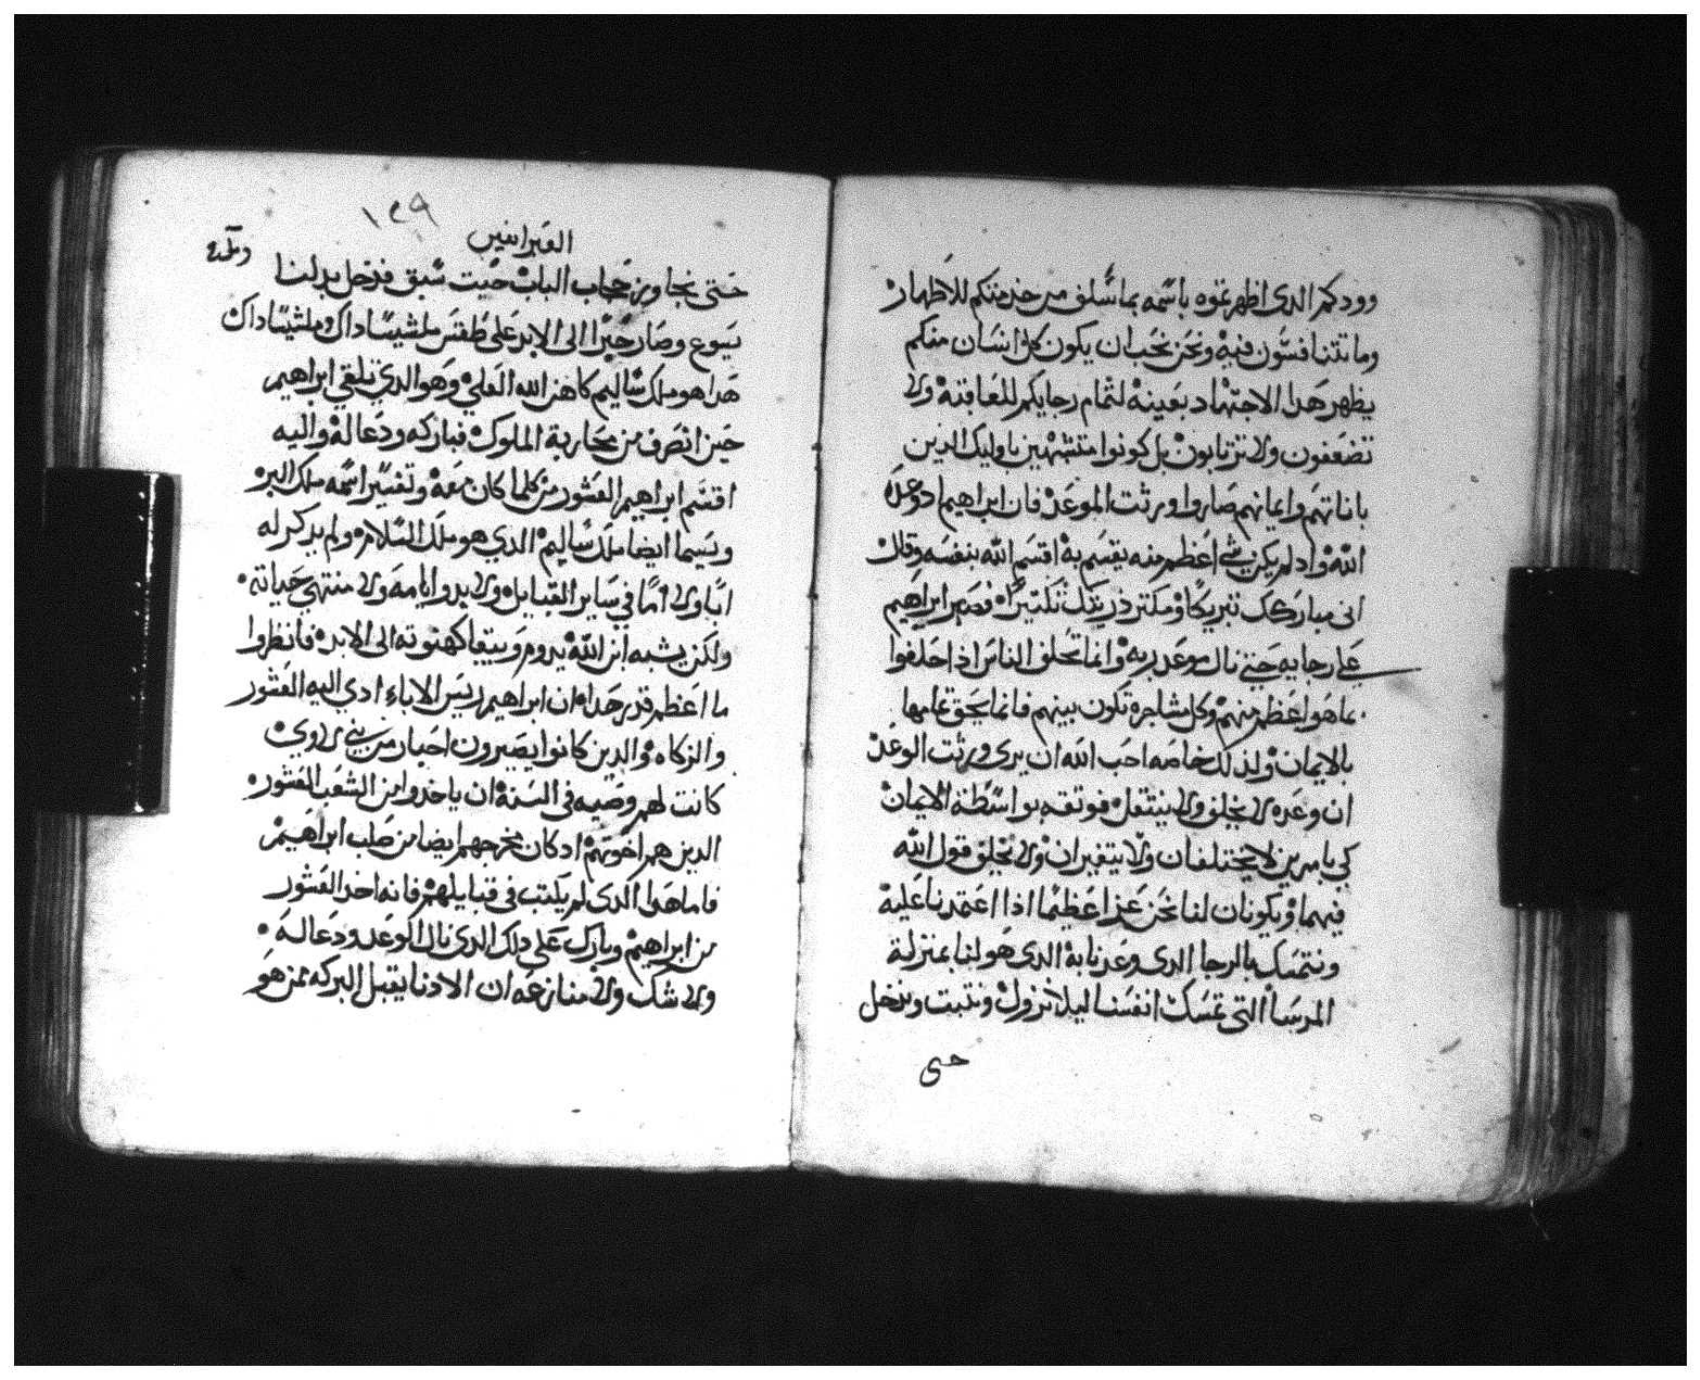 وودكم الدي اظهرتموه باسمه بما سلف من خدمتكم للاطهار
وما تتنافسون فيه ونحن نحب ان يكون كل انسان منكم
يظهر هدا الاجتهاد بعينه لتمام رجايكم للعاقبة ولا
تضعفون ولا ترتابون بل كونوا متشبهين باوليك الذين
باناتهم وايمانهم صاروا ورثت الموعد فان ابراهيم اد وعده
الله واد لم يكن شي اعظم منه يقسم به اقسم الله بنفسه وقال
اني مباركك تبريكا ومكتر ذريتك تكتيرا فصبر ابراهيم
علي رجايه حتي نال موعد ربه وانما تحلف الناس اذا حلفوا
بما هو اعظم منهم وكل مشاجرة تكون بينهم فانما يحق تمامها
بالايمان ولذلك خاصه احب الله ان يرى ورثت الوعد
ان وعده لا يخلف ولا ينتقل فوتقه بواسطة الايمان
كي بامرين لا يختلفان ولا يتغيران ولا تخلف قول الله
فيهما ويكونان لنا نحن عزا عظيما اذا اعتمدنا عليه
ونتمسك بالرجا الدى وعدنا به الدى هو لنا بمنزلة
المرسا التي تمسك انفسنا ليلا تزول ونتبت وندخل
حتى
١٤٩
العبرانيين
حتى نجاوز حجاب الباب حيت سبق فدخل بدلنا
يسوع وصار حبرا الى الابد على طقس ملشيساداك وملشيساداك
هدا هو ملك ساليم كاهن الله العلي وهو الدي تلقي ابراهيم
حين انصرف من محاربة الملوك فباركه ودعا له واليه
اقسم ابراهيم العشور من كلما كان معه وتفسير اسمه ملك البر
ويسما ايضا ملك ساليم الدي هو ملك السلامه ولم يدكر له
ابا ولا اما في ساير القبايل ولا بدو ايامه ولا منتهي حياته
ولكن يشبه ابن الله يدوم ويبقا كهنوته الى الابد فانظروا
ما اعظم قدر هدا ان ابراهيم ريس الاباء ادي اليه العشور
والزكاه والدين كانوا يصيرون احبار من بني لاوي
كانت لهم وصيه في السنة ان ياخدوا من الشعب العشور
الدين هم اخوتهم اد كان مخرجهم ايضا من صلب ابراهيم
فاما هدا الدى لم يكتب في قبايلهم فانه اخد العشور
من ابراهيم وبارك على دلك الدى نال الوعد ودعا له
ولا شك ولا منازعه ان الادنا يقبل البركه ممن هو